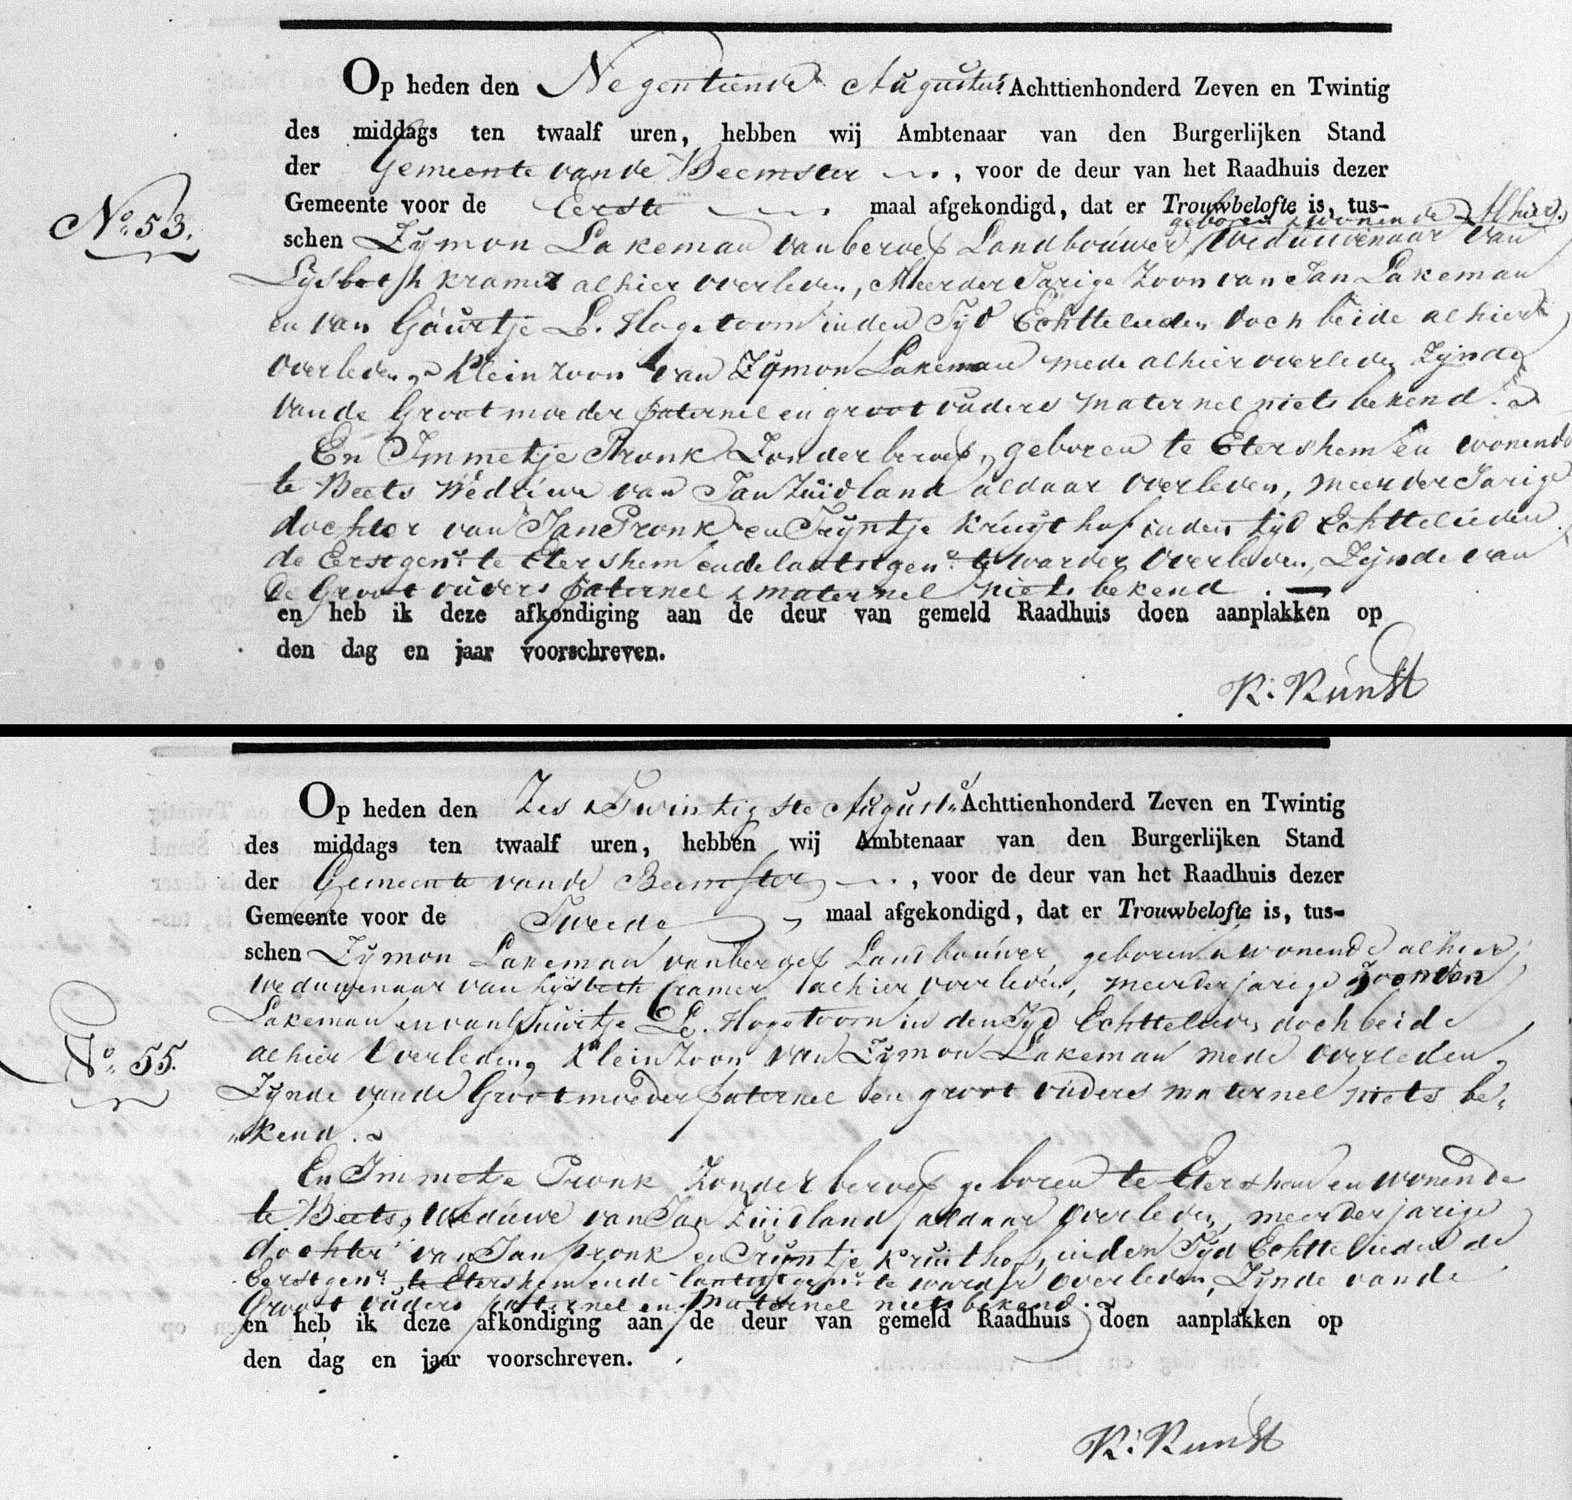 Op heden den Negentiende Augustus Achttienhonderd Zeven en Twintig
des middags ten twaalf uren, hebben wij Ambtenaar van den Burgerlijken Stand
der Gemeente van de Beemster, voor de deur van het Raadhuis dezer
Gemeente voor de Eerste maal afgekondigd, dat er Trouwbelofte is, tus-
geboren & wonende Alhier,
No. 53.
schen Zymon Lakeman van beroep Landbouwer Weduwenaar van
Lysbeth Kramer alhier overleden, Meerder Jarige Zoon van Jan Lakeman
en van Gúurtje L. Hogetoorn in den Tyd Echttelieden doch beide alhier
overleden, Kleinzoon van Zymon Lakeman mede alhier overleden Zynde
van de Grootmoeder paternel en groot ouders maternel niets bekend.
En Immetje Pronk Zonder beroep, geboren te Etershem en wonende
te Beets Weduwe van Jan Zuidland aldaar overleden, meerder Jarige
dochter van Jan Pronk en Tryntje Kruythof in den tyd Echttelieden
de Eerstgen. te Etershem en de laatstgen. te Warder overleden, Zynde van
de Groot ouders paternel & maternel niets bekend.
en heb ik deze afkondiging aan de deur van gemeld Raadhuis doen aanplakken op
den dag en jaar voorschreven.
K. Kunst
Op heden den Zes & Twintigste August. Achttienhonderd Zeven en Twintig
des middags ten twaalf uren, hebben wij Ambtenaar van den Burgerlijken Stand
der Gemeente van de Beemster, voor de deur van het Raadhuis dezer
Gemeente voor de Tweede maal afgekondigd, dat er Trouwbelofte is, tus-
schen Zymon Lakeman van beroep Landbouwer, geboren & wonende alhier,
Weduwenaar van Lysbeth Cramer alhier overleden, meerderjarige Zoon van
Lakeman en van Guurtje L. Hogetoorn in den Tyd Echttelieden doch beide
No. 55.
alhier overleden, Kleinzoon van Zymon Lakeman mede overleden,
Zynde van de Grootmoeder paternel en groot ouders maternel niets be-
kend.
En Immetje Pronk Zonder beroep geboren te Etershem en wonende
te Beets, Weduwe van Jan Zuidland aldaar overleden, meerderjarige
dochter van Jan Pronk en Tryntje Kruithof, in den Tyd Echttelieden de
Eerstgen. te Etershem en de laatstgen. te Warder overleden, Zynde van de
Groot ouders paternel en maternel niets bekend.
en heb ik deze afkondiging aan de deur van gemeld Raadhuis doen aanplakken op
den dag en jaar voorschreven.
K. Kunst